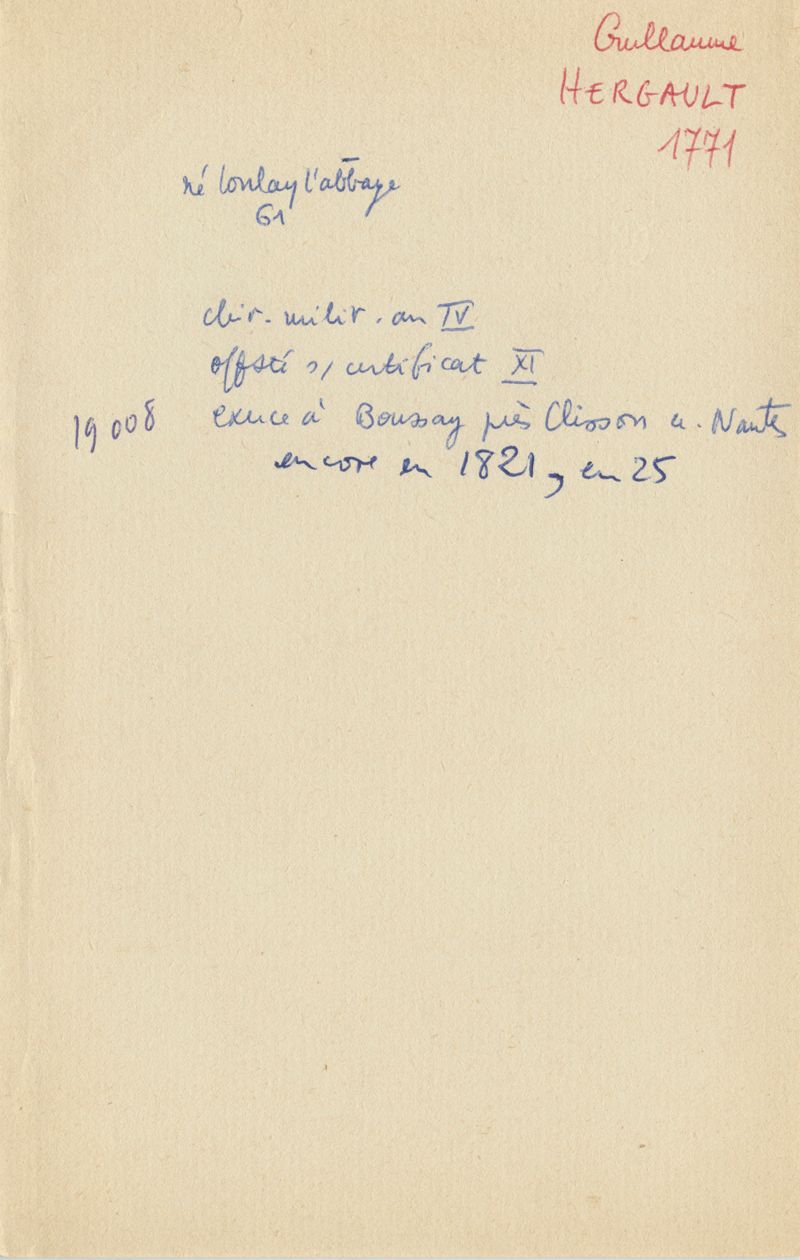 Guillaume
HERGAULT
1771
né Lonlay l'abbaye
61
chir. milit. an IV
offsté s/ certificat XI
19 008 exerce à Boussay près Clisson a. Nantes
encore en 1821, en 25